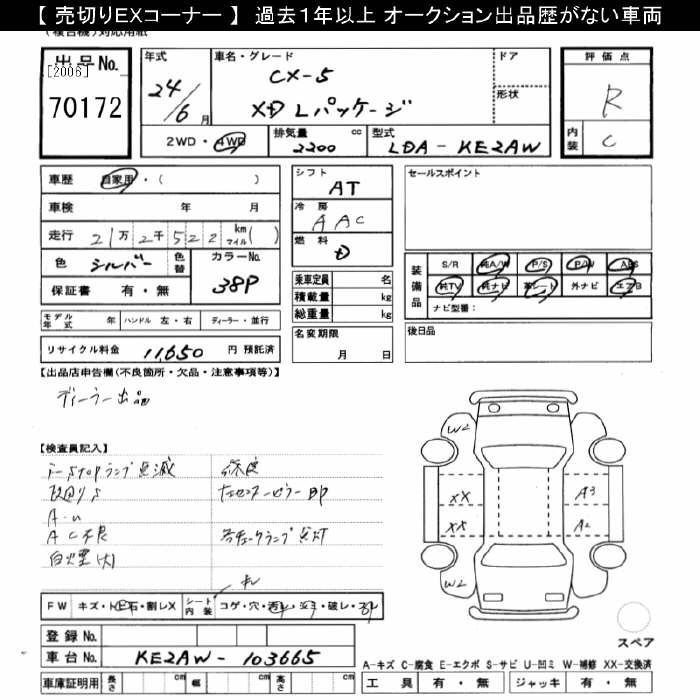 【 売切りEXコーナー 】 過去１年以上 オークション出品歴がない車両
出品No.
[2006]
70172
年式 24/6 月
車名・グレード CX-5
XD Lパッケージ
ドア
形状
2WD・4WD
排気量 2200 cc
型式 LDA - KE2AW
評価点 R
内装 C
車歴 自家用・( )
車検 年 月
走行 21万2千522 km マイル( )
色 シルバー 色替
カラーNo. 38P
保証書 有・無
モデル年式 年 ハンドル 左・右 ディーラー・並行
リサイクル料金 11,650 円 預託済
シフト AT
冷房 AAC
燃料 D
乗車定員 名
積載量 kg
総重量 kg
名変期限
月 日
セールスポイント
装備品
S/R 純A/W P/S P/W ABS
純TV 純ナビ 革シート 外ナビ エアB
ナビ型番：
後日品
【出品店申告欄(不良箇所・欠品・注意事項等)】
ディーラー出品
【検査員記入】
AC不良
白煙(大)
各チェックランプ点灯
W2
XX
XX
W2
A3
A2
FW キズ・トビ石・割レX
シート内装 コゲ・穴・汚レ・シミ・破レ・スレ
登録No.
車台No. KE2AW - 103665
車庫証明用 長さ cm 幅 cm 高さ cm
スペア
A-キズ C-腐食 E-エクボ S-サビ U-凹ミ W-補修 XX-交換済
工具 有・無 ジャッキ 有・無